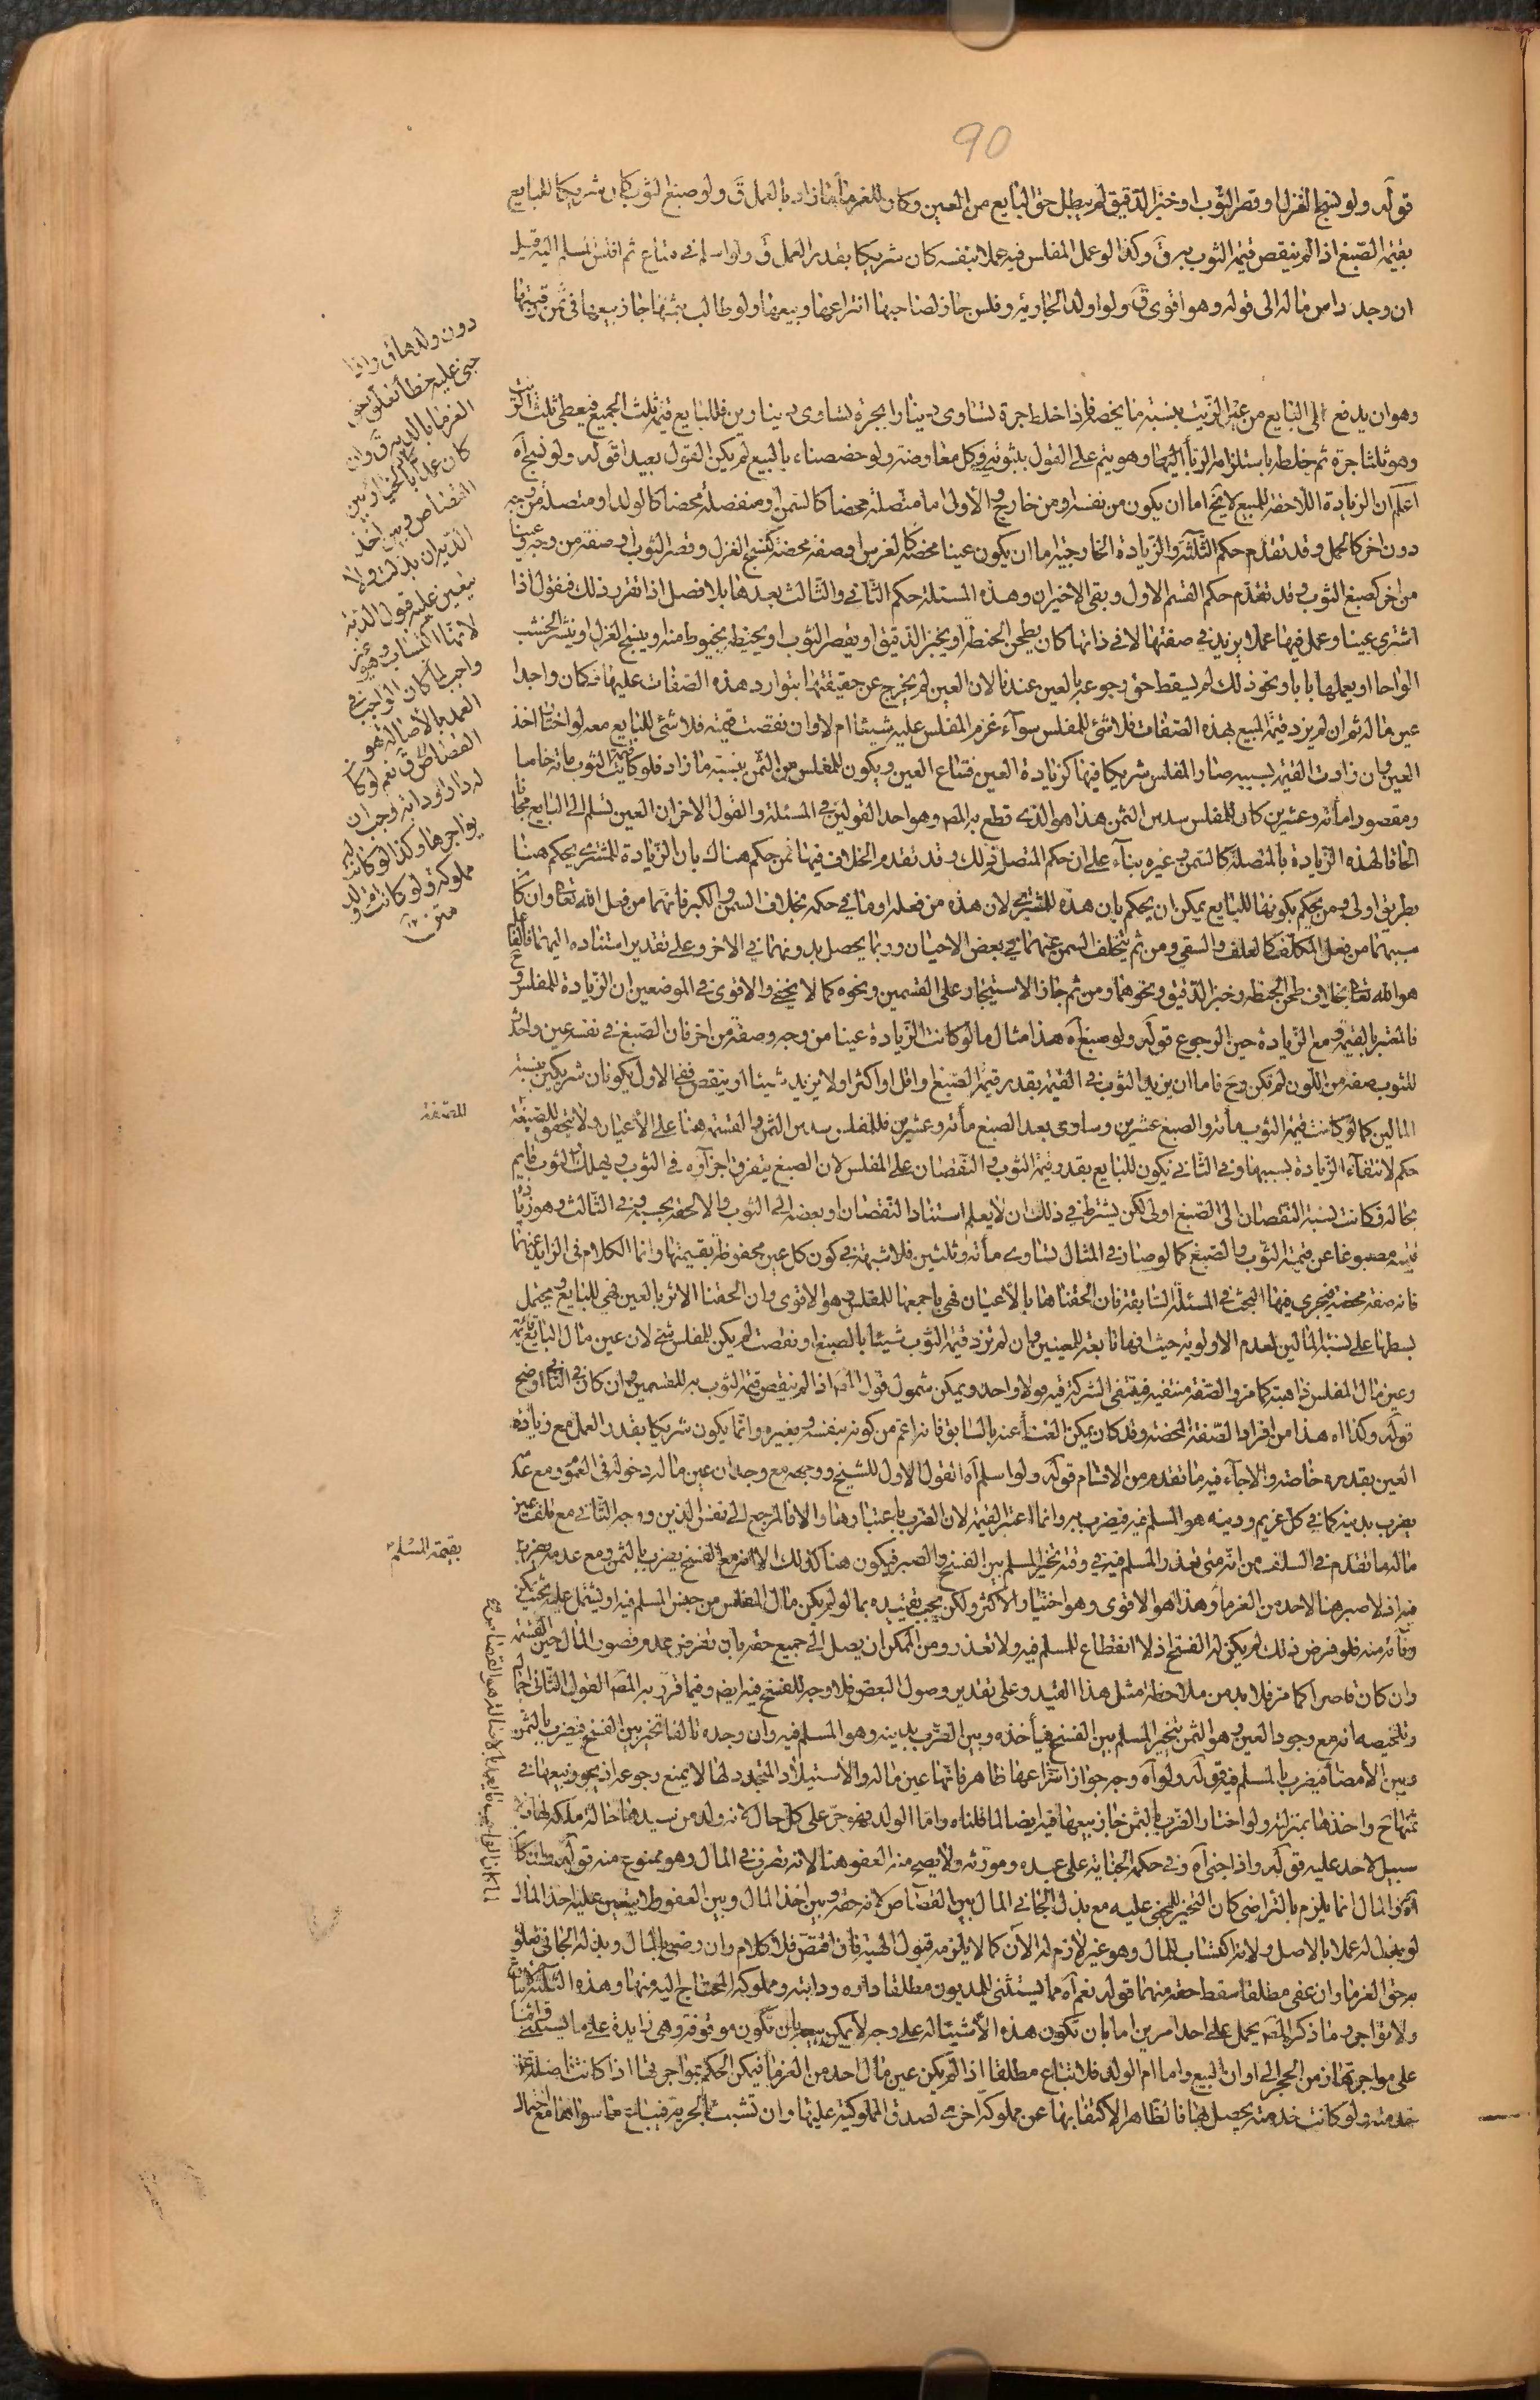 90
قوله ولو نسج الغزل او قصر الثوب او خبز الدقيق لم يبطل حق البايع من العين وكان للغرماء ما زاد بالعمل ق ولو صبغ الثوب كان شريكا للبايع
بقيمة الصبغ اذا لم ينقص قيمة الثوب به ق وكذا لو عمل المفلس فيه عملا بنفسه كان شريكا بقدر العمل ق ولو اسلم في متاع ثم افلس المسلم اليه قيل
ان وجد راس ماله الى قوله وهو اقوى ق ولو اولد الجارية وفلس جاز لصاحبها انتزاعها وبيعها ولو طالب بثمنها جاز بيعها في ثمن رقبتها
دون ولدها ق واذا
جنى عليه خطأ تعلق حق
الغرماء بالدية ق وان
كان عمدا كان بالخيار بين
القصاص وبين اخذ
الدية ان بذلت ولا
يتعين عليه قبول الدية
لانها اكتساب وهو غير
واجب
القصاص ق نعم لو كان
له دار او دابة وجب ان
يواجرها وكذا لو كانت له
مملوكة ولو كانت ام ولد
متن
وهو ان يدفع الى البايع من عين الزيت بنسبة ما يخصه فاذا خلط جرة تساوى دينارا بجرة تساوى دينارين فللبايع قيمة ثلث الجميع فيعطى ثلث الزيت
وهو ثلثا جرة ثم خلطه باستلزامه الربا اليها وهو يتم على القول بثبوته في كل معاوضة ولو خصصناه بالبيع لم يكن القول بعيدا قوله ولو نسج آه
اعلم ان الزيادة اللاحقة للمبيع لا يخ اما ان يكون من نفسه او من خارج والأولى اما متصلة محضا كالسمن او منفصلة محضا كالولد او متصلة من وجه
دون اخر كالحمل وقد تقدم حكم الثلثة والزيادة الخارجية اما ان يكون عينا محضة كالغرس او صفة محضة كنسج الغزل وقصر الثوب او صفة من وجه وعينا
من اخر كصبغ الثوب وقد تقدم حكم القسم الاول وبقى الاخيران وهذه المسئلة حكم الثاني والثالث بعدها بلا فصل اذا تقرر ذلك فنقول اذا
اشترى عينا وعمل فيها عملا يزيد في صفتها لا في ذاتها كان يطحن الحنطة او يخبز الدقيق او يقصر الثوب او يخيطه بخيوط منه او ينسج الغزل او ينشر الخشب
الواحا او يعملها بابا ونحو ذلك لم يسقط حق رجوعه بالعين عندنا لان العين لم يخرج عن حقيقتها بتوارد هذه الصفات عليها فكان واجدا
عين ماله ثم ان لم يزد قيمة المبيع بهذه الصفات فلا شئ للمفلس سوآء غرم المفلس عليه شيئا ام لا وان نقصت قيمته فلا شئ للبايع معه لو اختار اخذ
العين وان زادت القيمة بسببه صار المفلس شريكا فيها كزيادة العين فتباع العين ويكون للمفلس من الثمن بنسبة ما زاد فلو كانت قيمة الثوب مائة خاما
ومقصورا مأة وعشرين كان للمفلس سدس الثمن هذا هو الذى قطع به المصـ وهو احد القولين في المسئلة والقول الاخر ان العين تسلم الى البايع مجانا
الحاقا لهذه الزيادة بالمتصلة كالسمن وغيره بناء على ان حكم المتصل ذلك وقد تقدم الخلاف فيها فمن حكم هناك بان الزيادة للمشترى يحكم هنا
بطريق اولى ومن يحكم بكونها للبايع يمكن ان يحكم بان هذه للمشترى لان هذه من فعله او ما في حكمه بخلاف السمن والكبر فانهما من فعل الله تعالى وان كان
سببهما من فعل المكلف كالعلف والسقي ومن ثم يتخلف السمن عنهما في بعض الاحيان وربما يحصل بدونهما في الاخر وعلى تقدير استناده اليهما فالفاعل
هو الله تعالى بخلاف طحن الحنطة وخبز الدقيق ونحوهما ومن ثم جاز الاستيجار على القسمين ونحوه كما لا يخفى والاقوى في الموضعين ان الزيادة للمفلس
فالمعتبر بالقيمة مع الزيادة حين الرجوع قوله ولو صبغ آه هذا مثال ما لو كانت الزيادة عينا من وجه وصفة من اخر فان الصبغ في نفسه عين واحداثه
للثوب صفة من اللون لم تكن وح فاما ان يزيد الثوب في القيمة بقدر قيمة الصبغ او اقل او اكثر او لا يزيد شيئا او ينقص ففي الاول يكونان شريكين بنسبة
المالين كما لو كانت قيمة الثوب مأة والصبغ عشرين وساوى بعد الصبغ مأة وعشرين فللمفلس سدس الثمن والقسمة هنا على الأعيان ولا يتحقق للصفة
للصفة
حكم لانتفآء الزيادة بسببها وفي الثاني يكون للبايع بقدر قيمة الثوب والنقصان على المفلس لان الصبغ يتفرق اجزآؤه في الثوب ويهلك والثوب قايم
بحاله فكانت نسبة النقصان الى الصبغ اولى لكن يشترط في ذلك ان لا يعلم استناد النقصان او بعضه الى الثوب والا لحقه بحسبه وفي الثالث وهو زيادة
قيمته مصبوغا عن قيمة الثوب والصبغ كما لو صار في المثال تساوى مأة وثلثين فلا شبهة في كون كل عين محفوظة بقيمتها وانما الكلام في الزايد عنها
فانه صفة محضة فيجرى فيها البحث في المسئلة السابقة فان الحقناها بالأعيان فهى باجمعها للمفلس وهو الاقوى وان الحقنا الاثر بالعين فهى للبايع ويحتمل
بسطها على نسبة المالين لعدم الاولوية حيث انها تابعة للعينين وان لم تزد قيمة الثوب شيئا بالصبغ او نقصت لم يكن للمفلس شئ لان عين مال البايع قائمة
وعين مال المفلس ذاهبة كما مر والصفة منتفية فينتفى الشركة فيه قولا واحدا ويمكن شمول قول المصـ اذا لم ينقص قيمة الثوب به للقسمين وان كان في الثاني اوضح
قوله وكذا اه هذا من افراد الصفة المحضة وقد كان يمكن الغنا عنه بالسابق فانه اعم من كونه بنفسه وبغيره وانما يكون شريكا بقدر العمل مع زيادة
العين بقدره خاصة والا جآء فيه ما تقدم من الاقسام قوله ولو اسلم آه القول الاول للشيخ ووجهه مع وجدان عين ماله دخوله في العموم ومع عدمه
يضرب بدينه كما في كل غريم ودينه هو المسلم فيه فيضرب به وانما اعتبر القيمة لان الضرب باعتبارها والا فالمرجع الى نفس الدين ووجه الثاني مع تلف عين
ماله ما تقدم في السلف من انه متى تعذر المسلم فيه في وقته تخير المسلم بين الفسخ والصبر فيكون هنا كذلك الا انه مع الفسخ يضرب بالثمن ومع عدمه يضرب
بقيمة المسلم
فيه اذ لا صبر هنا لاحد من الغرمآء وهذا هو الاقوى وهو اختيار الأكثر ولكن يجب تقييده بما لو لم يكن مال المفلس من جنس المسلم فيه او يشتمل عليه بحيث يمكن
وفآئه منه فلو فرض ذلك لم يكن له الفسخ اذ لا انقطاع للمسلم فيه ولا تعذر ومن الممكن ان يصل الى جميع حقه بان نفرض عدم قصور المال حين القسمة
وان كان قاصرا كما مر فلا بد من ملاحظة مثل هذا القيد وعلى تقدير وصول البعض فلا وجه للفسخ فيه ايضا وفيما قرر به المصـ القول الثاني اجمال
وتلخيصه انه مع وجود العين وهو الثمن يتخير المسلم بين الفسخ فيأخذه وبين الضرب بدينه وهو المسلم فيه وان وجده تالفا تخير بين الفسخ فيضرب بالثمن
وبين الامضآء فيضرب بالمسلم فيه قوله ولو آه وجه جواز انتزاعها ظاهر فانها عين ماله والاستيلاد المتجدد لها لا يمنع رجوعه اذ يجوز بيعها في
ثمنها ح واخذها بمنزلته ولو اختار الضرب بالثمن جاز بيعها فيه ايضا لما قلناه واما الولد فهو حر على كل حال لانه ولد من سيدها حالة ملكه لها فلا
سبيل لاحد عليه قوله واذا جنى آه وفي حكمه الجناية على عبده ومورثه ولا يصح منه العفو هنا لانه تصرف في المال وهو ممنوع منه قوله وان كان
آه والمال انما يلزم بالتراضى كان التخير للمجنى عليه مع بذل الجاني المال بين القصاص لانه حقه وبين اخذ المال وبين العفو ولا يتعين عليه اخذ المال
لو بذل له عملا بالاصل ولانه اكتساب للمال وهو غير لازم له الآن كما لا يلزمه قبول الهبة فان اقتص فلا كلام وان رضى بالمال وبذله الجاني تعلق
به حق الغرمآء وان عفى مطلقا سقط حقه منهما قوله نعم آه مما يستثنى للمديون مطلقا داره ودابته ومملوكه المحتاج اليه منها وهذه الثلثة لا تباع
ولا تؤاجر وما ذكره المصـ يحمل على احد امرين اما بان تكون هذه الأشياء له على وجه لا يمكن بيعها بان تكون موقوفة وهى زايدة على ما يستثنى
على مواجرتها زمن الحجر الى اوان البيع واما ام الولد فلا تباع مطلقا اذا لم يكن عين مال احد من الغرمآء فيمكن الحكم بمواجرتها اذا كانت فاضلة عن
خدمته ولو كانت خدمته يحصل بها فالظاهر الاكتفآء بها عن مملوكة اخرى لصدق المملوكية عليها وان تشبثت بالحرية فيباع ما سواها مع احتمال